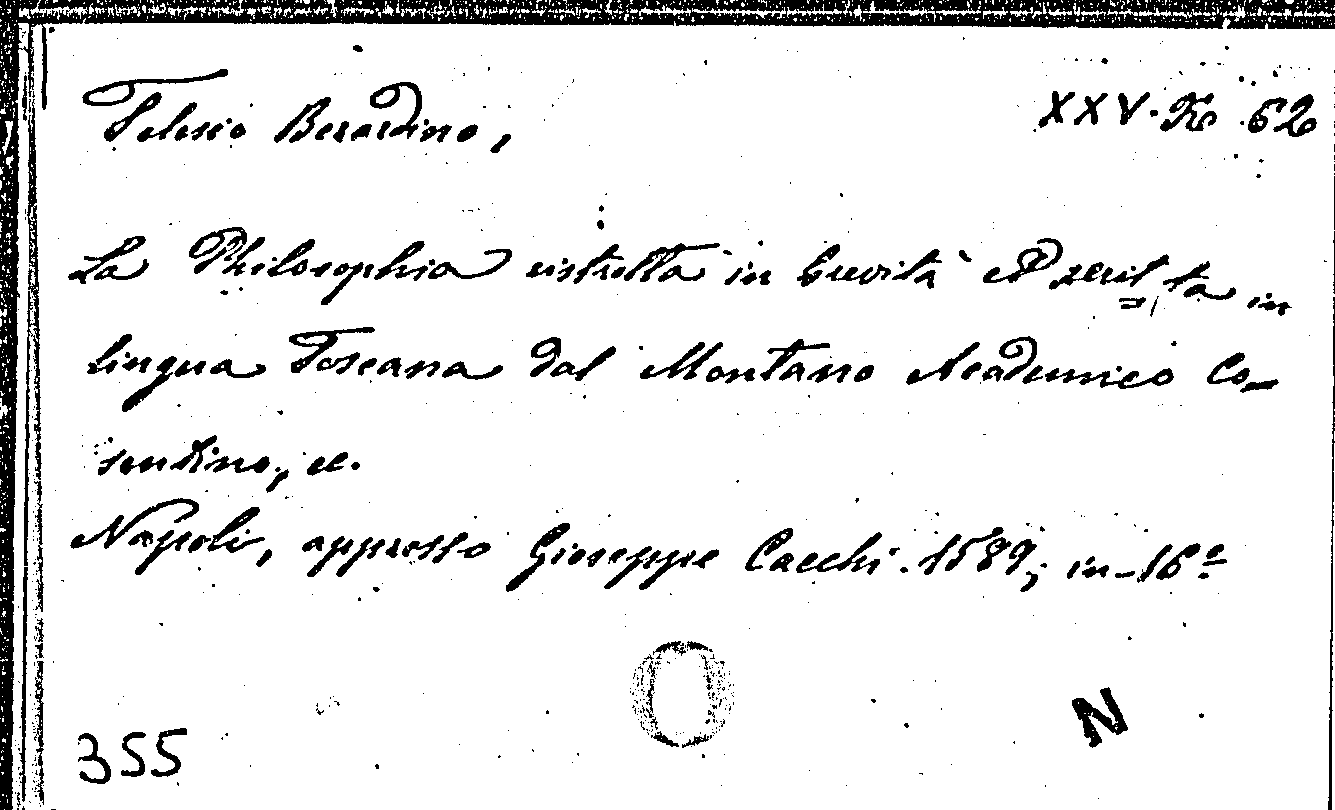 Telesio Berardino,
XXV. K. 62
La Philosophia ristretta in brevità et scritta in
lingua Toscana dal Montano Academico Co-
sentino, ec.
Napoli, appresso Giuseppe Cacchi. 1589; in-16º
N
355